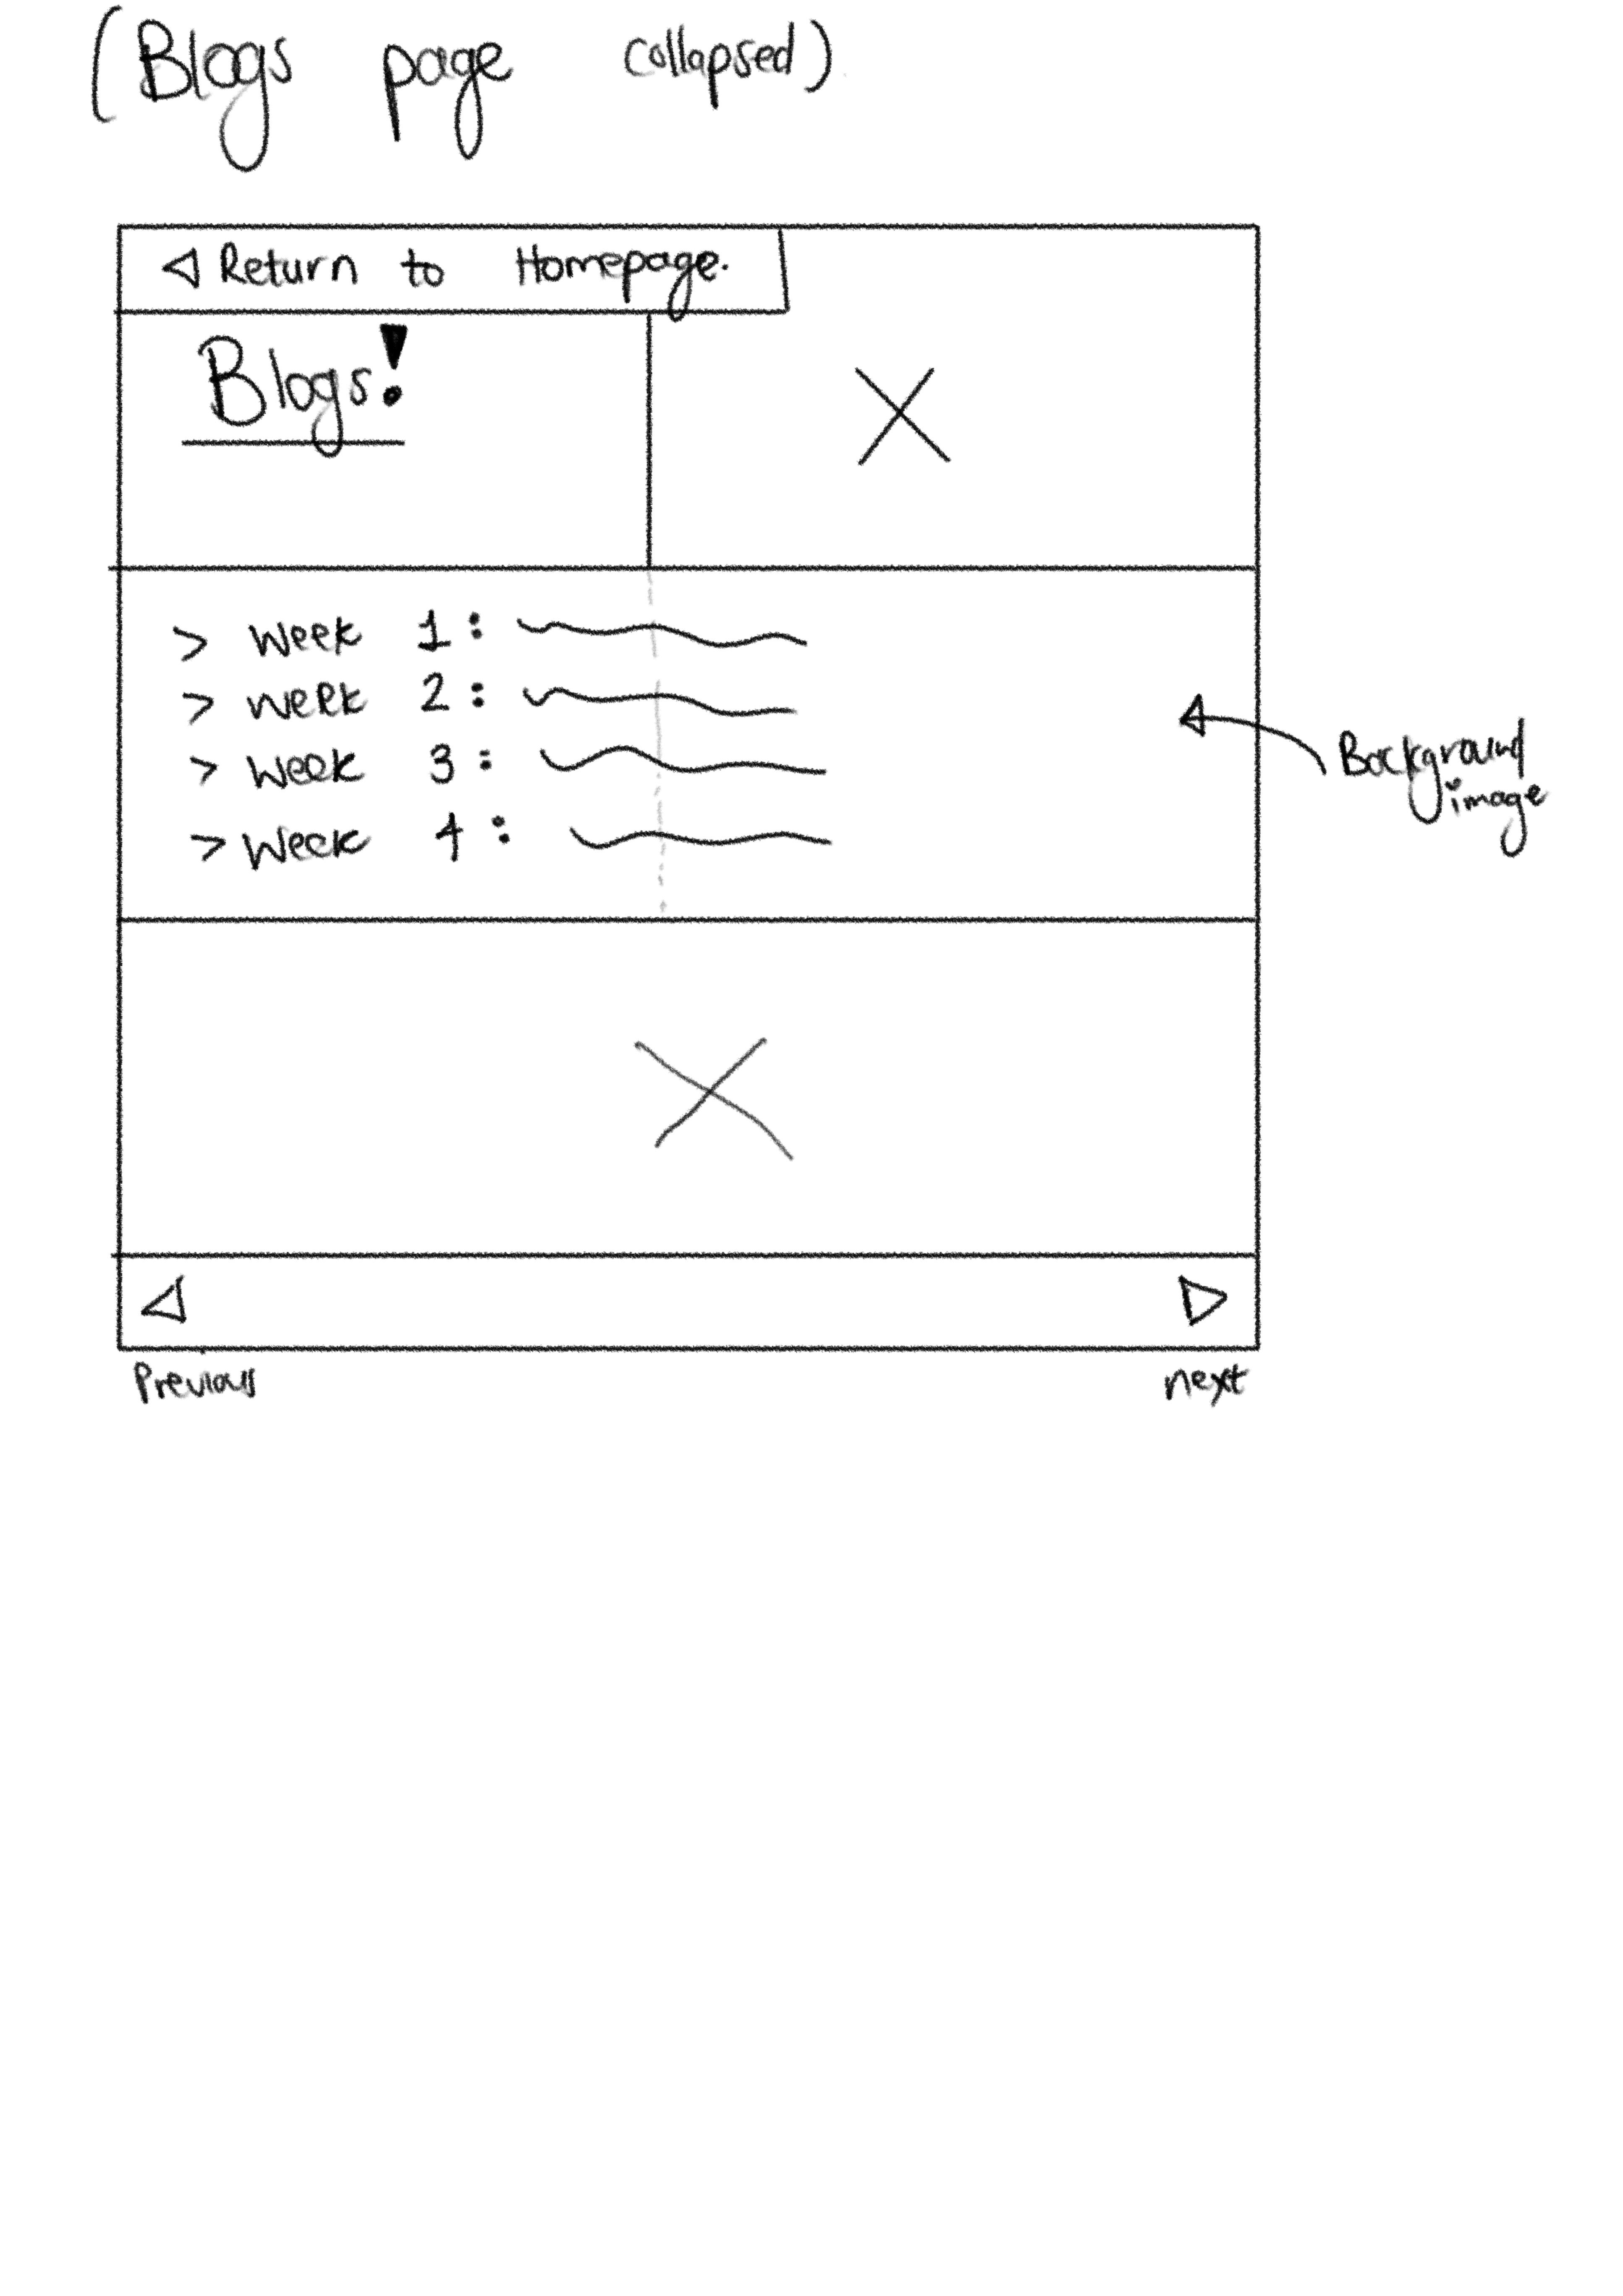 (Blogs page collapsed)
Return to Homepage.
Blogs!
> week 1:
> week 2:
> week 3:
> week 4:
Background
image
Previous
next